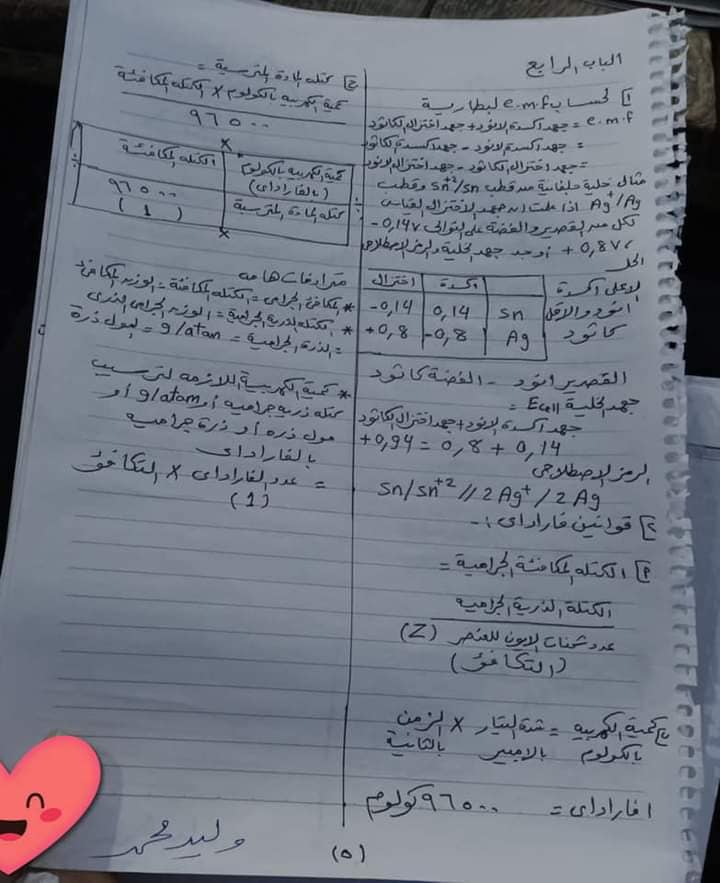 الباب الرابع
١] لحساب e.m.f لبطارية
e.m.f = جهد أكسدة الانود + جهد اختزال الكاثود
= جهد أكسدة الانود - جهد أكسدة الكاثود
= جهد اختزال الكاثود - جهد اختزال الانود
مثال خلية جلفانية من قطب Sn+2/Sn وقطب
Ag+/Ag اذا علمت ان جهد الاختزال القياسى
لكل من القصدير والفضة على التوالى -0,14v
، +0,8v أوجد جهد الخلية والرمز الاصطلاحى
الحل
أكسدة اختزال
Sn 0,14 -0,14
Ag -0,8 +0,8
لاعلى أكسدة
انود والاقل
كاثود
القصدير انود - الفضة كاثود
جهد الخلية Ecell =
جهد أكسدة الانود + جهد اختزال الكاثود
0,14 + 0,8 = +0,94
الرمز الاصطلاحى
Sn/Sn+2 // 2Ag+ / 2Ag
٢] قوانين فاراداى :-
أ] الكتله المكافئة الجرامية =
الكتلة الذرية الجراميه
عدد شحنات الايون للعنصر (Z)
(التكافؤ)
ب] كمية الكهربيه = شدة التيار × الزمن
بالكولوم بالامبير بالثانية
١ فاراداى = ٩٦٠٠٠ كولوم
ج] كتله المادة المترسبة =
كمية الكهربيه بالكولوم × الكتله المكافئة
٩٦٠٠٠
×
كمية الكهربيه بالكولوم (بالفاراداى) الكتله المكافئة
كتله المادة المترسبة ٩٦٠٠٠ (1)
×
مترادفات هامه
* المكافئ الجرامى = الكتله المكافئة = الوزن المكافئ
* الكتله الذرية الجرامية = الوزن الجرامى الذرى
= الذرة الجرامية = g/atom = مول ذرة
* كمية الكهربية اللازمه لترسيب
كتله ذريه جراميه أو g/atom أو
مول ذره أو ذرة جراميه
بالفاراداى
= عدد الفاراداى × التكافؤ
(1)
وليد محمد
(٥)